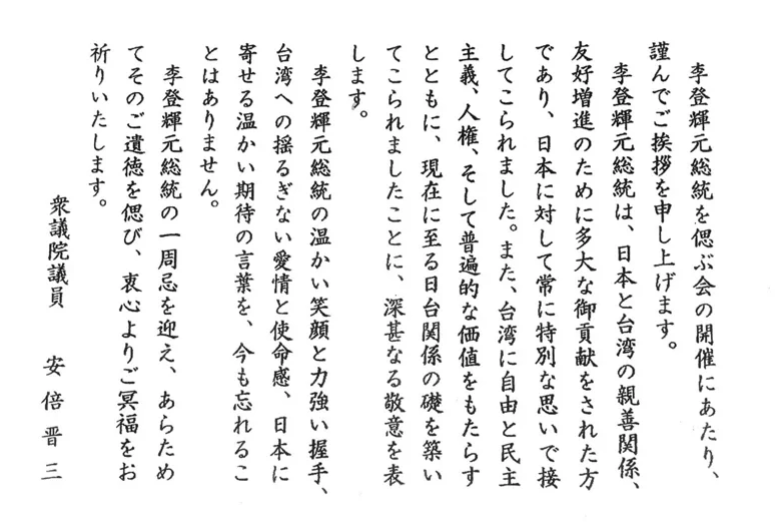 李登輝元総統を偲ぶ会の開催にあたり、
謹んでご挨拶を申し上げます。
李登輝元総統は、日本と台湾の親善関係、
友好増進のために多大な御貢献をされた方
であり、日本に対して常に特別な思いで接
してこられました。また、台湾に自由と民主
主義、人権、そして普遍的な価値をもたらす
とともに、現在に至る日台関係の礎を築い
てこられましたことに、深甚なる敬意を表
します。
李登輝元総統の温かい笑顔と力強い握手、
台湾への揺るぎない愛情と使命感、日本に
寄せる温かい期待の言葉を、今も忘れるこ
とはありません。
李登輝元総統の一周忌を迎え、あらため
てそのご遺徳を偲び、衷心よりご冥福をお
祈りいたします。
衆議院議員　安倍晋三